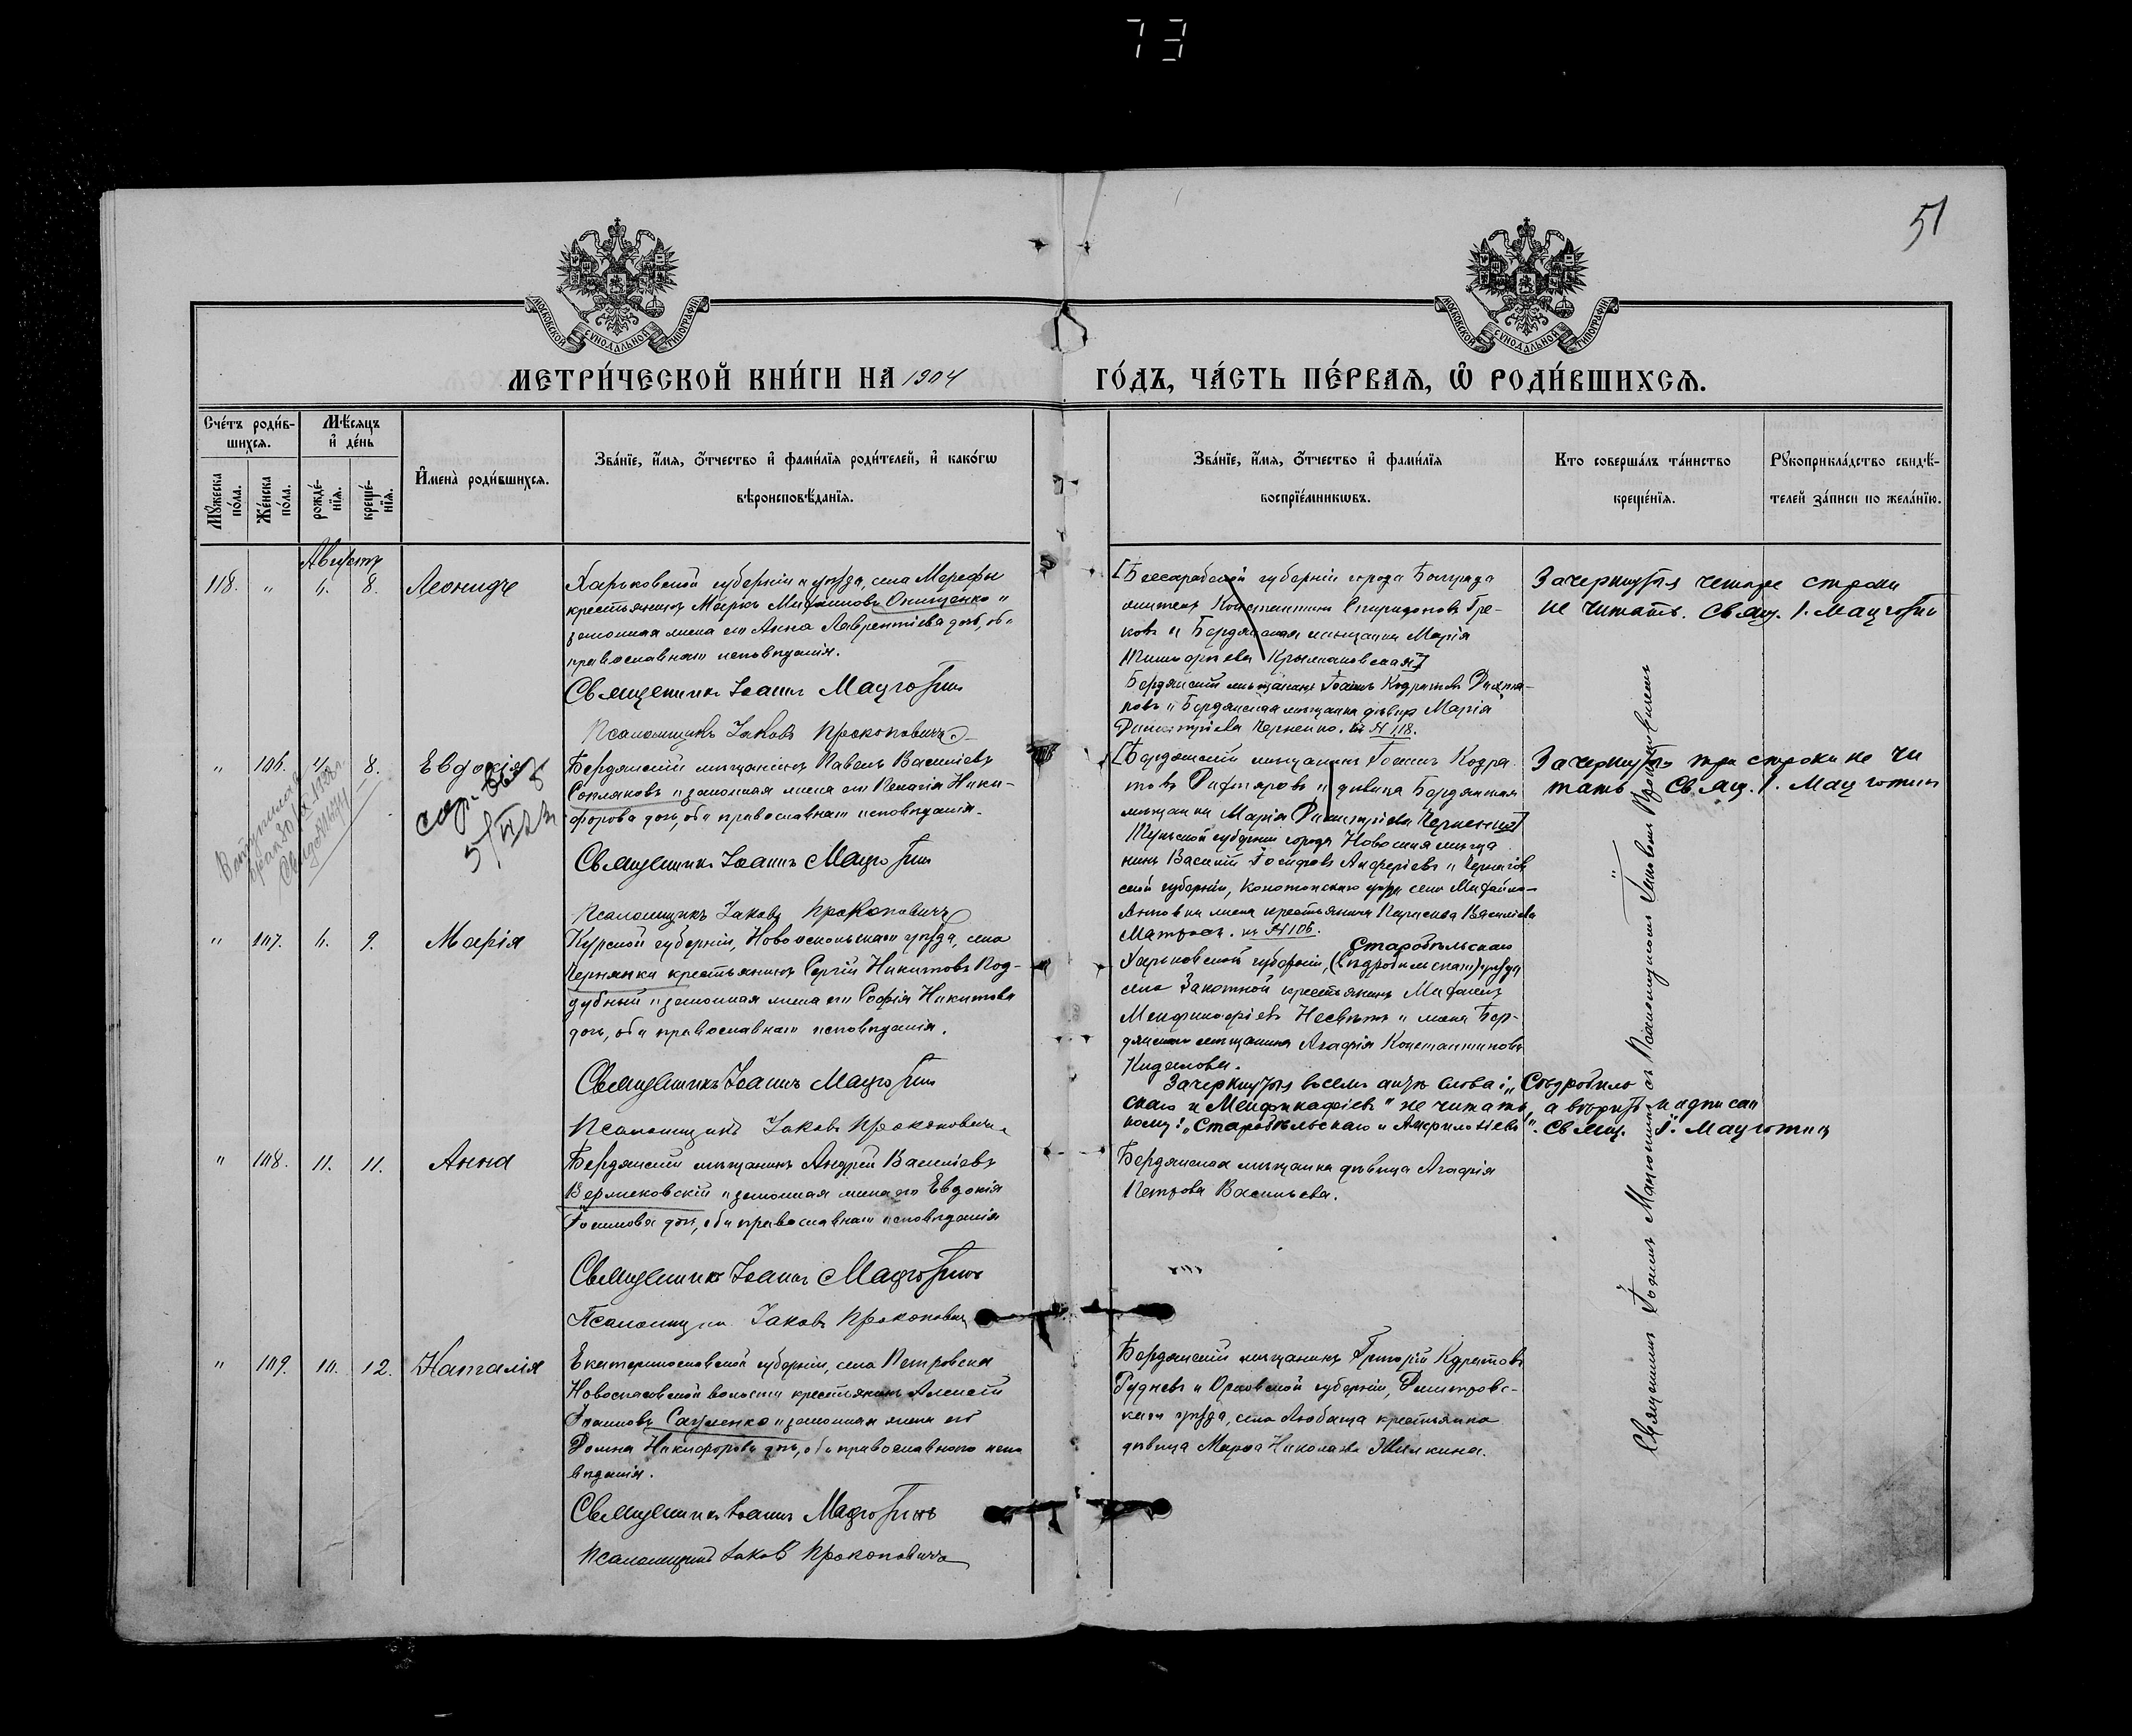 73
51
МОСКОВСКОЙ СѴНОДАЛЬНОЙ ТИПОГРАФІИ
МОСКОВСКОЙ СѴНОДАЛЬНОЙ ТИПОГРАФІИ
МЕТРИ́ЧЕСКОЙ КНИ́ГИ НА 1904
ГО́ДЪ, ЧА́СТЬ ПЕ́РВАЯ, Ѽ РОДИ́ВШИХСЯ.
Сче́тъ роди́в-
шихся.
Мѣ́сяцъ
и де́нь
Му́жеска
по́ла.
Же́нска
по́ла.
рожде́-
нія.
креще́-
нія.
Имена̀ роди́вшихся.
Зва́ніе, и́мя, о́тчество и фами́лія роди́телей, и како́гѡ
вѣроисповѣ́данія.
Зва́ніе, и́мя, о́тчество и фами́лія
воспріе́мникѡвъ.
Кто соверша́лъ та́инство
креще́нія.
Рукоприкла́дство свидѣ́-
телей за́писи по жела́нію.
Августъ
118. " 4. 8. Леонидъ
Харьковской губерніи и уѣзда, села Мерефы
крестьянинъ Маркъ Михайловъ Онищенко и
законная жена его Анна Лаврентіева дочь, оба
православнаго исповѣданія.
Священникъ Іоаннъ Мацготинъ
Псаломщикъ Іаковъ Прокоповичъ
[Бессарабской губерніи города Болграда
житель Константинъ Спиридоновъ Гре-
ковъ и Бердянская мѣщанка Марія
Тимофеева Крыжановская]
Бердянскій мѣщанинъ Іоаннъ Кодратовъ
и Бердянская мѣщанка дѣвица Марія
Димитріева Черненко. къ № 118.
Зачеркнутыя четыре строки
не читать. Свящ. І. Мацготин
" 106. 4. 8. Евдокія
5/VI 23
Бердянскій мѣщанинъ Павелъ Васильевъ
Сопляковъ и законная жена его Пелагія Ники-
форова дочь, оба православнаго исповѣданія.
Священникъ Іоаннъ Мацготин
Псаломщикъ Іаковъ Прокоповичъ
[Бердянскій мѣщанинъ Іоаннъ Кодра-
товъ и дѣвица Бердянская
мѣщанка Марія Димитріева Черненко]
Тульской губерніи города Новосиля мѣща-
нинъ Василій Іосифовъ Алферіевъ и Чернигов-
ской губерніи, Конотопскаго уѣзда села Михайло-
Анновки жена крестьянина Параскева Василіева
къ № 106.
Зачеркнутыя три строки не чи
тать Свящ. І. Мацготинъ
" 107. 4. 9. Марія
Курской губерніи, Новооскольскаго уѣзда, села
Чернянки крестьянинъ Сергій Никитовъ Под-
дубный и законная жена его Софія Никитова
дочь, оба православнаго исповѣданія.
Священникъ Іоаннъ Мацготин
Псаломщикъ Іаковъ Прокоповичъ
Старобѣльскаго
Харьковской губерніи, уѣзда
села Закотной крестьянинъ Михаилъ
и жена Бер-
дянскаго мѣщанина Агафія Константинова
Зачеркнутыя слова:
не читать, а вѣрить надписан
ному: „Старобѣльскаго и Амфилохіевъ". Свящ. І. Мацготинъ
" 108. 11. 11. Анна
Бердянскій мѣщанинъ Андрей Васильевъ
и законная жена его Евдокія
дочь, оба православнаго исповѣданія
Священникъ Іоаннъ Мацготинъ
Псаломщикъ Іаковъ Прокоповичъ
Бердянская мѣщанка дѣвица Агафія
Петрова Васильева.
" 109. 10. 12. Наталія
Екатеринославской губерніи, села Петровска
Новоспасовской волости крестьянинъ Алексій
Іоанновъ и законная жена его
Домна Никифорова дочь, оба православнаго испо
вѣданія.
Священникъ Іоаннъ Мацготинъ
Псаломщикъ Іаковъ Прокоповичъ
Бердянскій мѣщанинъ Григорій Кдратовъ
Рудневъ и Орловской губерніи, Димитровс-
каго уѣзда, села Любаща крестьянка
дѣвица Марѳа Николаева Жилкина.
Священникъ Іоаннъ Мацготинъ съ Псаломщикомъ Іаковомъ Прокоповичемъ